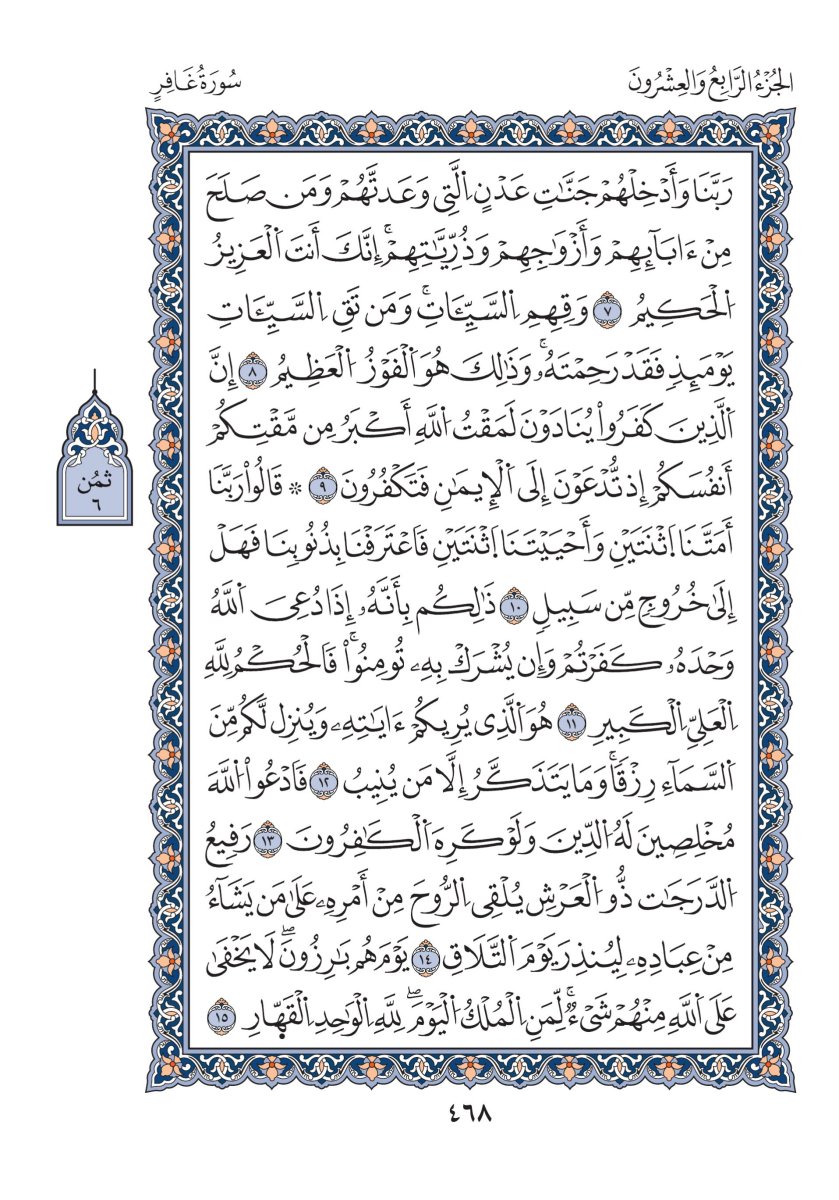 الجُزْءُ الرَّابِعُ وَالعِشْرُونَ
سُورَةُ غَافِرٍ
رَبَّنَا وَأَدْخِلْهُمْ جَنَّٰتِ عَدْنٍ اِ۬لَّتِي وَعَدتَّهُمْ وَمَن صَلَحَ
مِنْ ءَابَآئِهِمْ وَأَزْوَٰجِهِمْ وَذُرِّيَّٰتِهِمْۚ إِنَّكَ أَنتَ اَ۬لْعَزِيزُ
اُ۬لْحَكِيمُ ٧ وَقِهِمِ اِ۬لسَّيِّـَٔاتِۚ وَمَن تَقِ اِ۬لسَّيِّـَٔاتِ
يَوْمَئِذٖ فَقَدْ رَحِمْتَهُۥۚ وَذَٰلِكَ هُوَ اَ۬لْفَوْزُ اُ۬لْعَظِيمُ ٨ إِنَّ
اَ۬لَّذِينَ كَفَرُواْ يُنَادَوْنَ لَمَقْتُ اُ۬للَّهِ أَكْبَرُ مِن مَّقْتِكُمْ
أَنفُسَكُمْ إِذ تُّدْعَوْنَ إِلَى اَ۬لْإِيمَٰنِ فَتَكْفُرُونَ ٩ ۞ قَالُواْ رَبَّنَا
أَمَتَّنَا اَ۪ثْنَتَيْنِ وَأَحْيَيْتَنَا اَ۪ثْنَتَيْنِ فَاعْتَرَفْنَا بِذُنُوبِنَا فَهَلْ
إِلَىٰ خُرُوجٖ مِّن سَبِيلٖ ١٠ ذَٰلِكُم بِأَنَّهُۥ إِذَا دُعِيَ اَ۬للَّهُ
وَحْدَهُۥ كَفَرْتُمْ وَإِن يُشْرَكْ بِهِۦ تُومِنُواْۚ فَالْحُكْمُ لِلَّهِ
اِ۬لْعَلِيِّ اِ۬لْكَبِيرِ ١١ هُوَ اَ۬لَّذِي يُرِيكُمْ ءَايَٰتِهِۦ وَيُنزِل لَّكُم مِّنَ
اَ۬لسَّمَآءِ رِزْقاٗۚ وَمَا يَتَذَكَّرُ إِلَّا مَن يُنِيبُ ١٢ فَادْعُواْ اُ۬للَّهَ
مُخْلِصِينَ لَهُ اُ۬لدِّينَ وَلَوْ كَرِهَ اَ۬لْكَٰفِرُونَ ١٣ رَفِيعُ
اُ۬لدَّرَجَٰت ذُّو اُ۬لْعَرْشِ يُلْقِي اِ۬لرُّوحَ مِنْ أَمْرِهِۦ عَلَىٰ مَن يَشَآءُ
مِنْ عِبَادِهِۦ لِيُنذِرَ يَوْمَ اَ۬لتَّلَاقِ ١٤ يَوْمَ هُم بَٰرِزُونَۖ لَا يَخْفَىٰ
عَلَى اَ۬للَّهِ مِنْهُمْ شَيْءٞۚ لِّمَنِ اِ۬لْمُلْكُ اُ۬لْيَوْمَۖ لِلَّهِ اِ۬لْوَٰحِدِ اِ۬لْقَهّ۪ارِ ١٥
ثُمُن
٦
٤٦٨